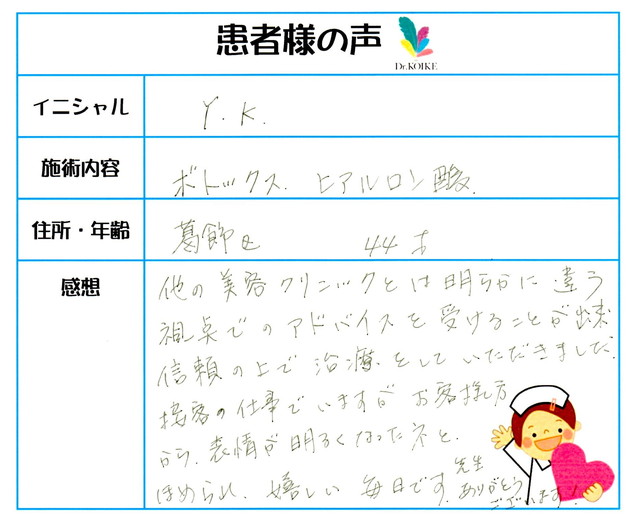 患者様の声
Dr.KOIKE
イニシャル
Y. K.
施術内容
ボトックス. ヒアルロン酸.
住所・年齢
葛飾区 44才
感想
他の美容クリニックとは明らかに違う
視点でのアドバイスを受けることが出来
信頼の上で治療をしていただきました.
接客の仕事でいますが お客様方
から、表情が明るくなったネと.
ほめられ、嬉しい毎日です.
先生
ありがとう
ございます!